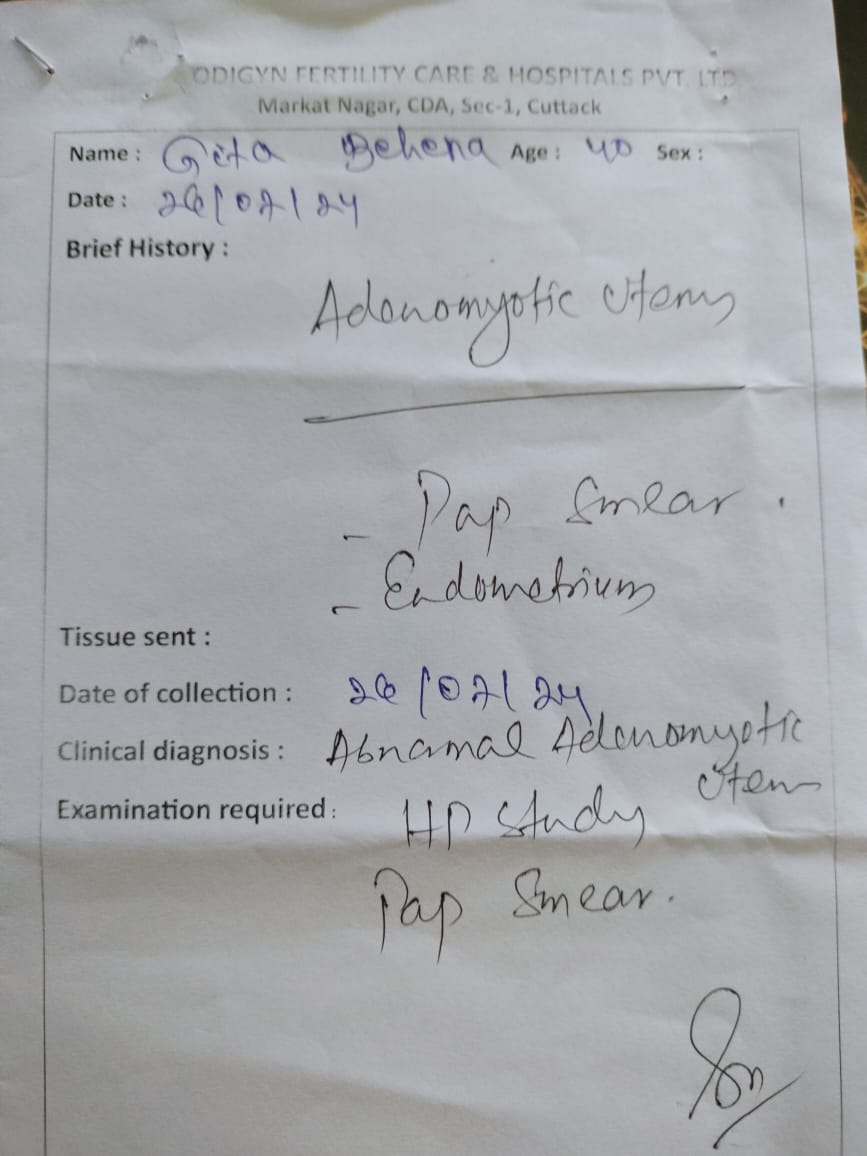 ODIGYN FERTILITY CARE & HOSPITALS PVT. LTD
Markat Nagar, CDA, Sec-1, Cuttack
Name : Gita Behena Age : 40 Sex :
Date : 26/02/24
Brief History :
Adenomyotic Uterus
- Pap Smear .
- Endometrium
Tissue sent :
Date of collection : 26/02/24
Clinical diagnosis : Abnormal Adenomyotic
Uterus
Examination required : HP Study
Pap Smear.